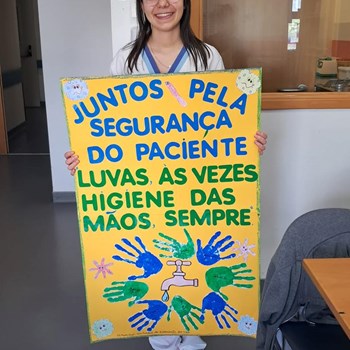 JUNTOS PELA
SEGURANÇA
DO PACIENTE
LUVAS, ÀS VEZES
HIGIENE DAS
MÃOS, SEMPRE